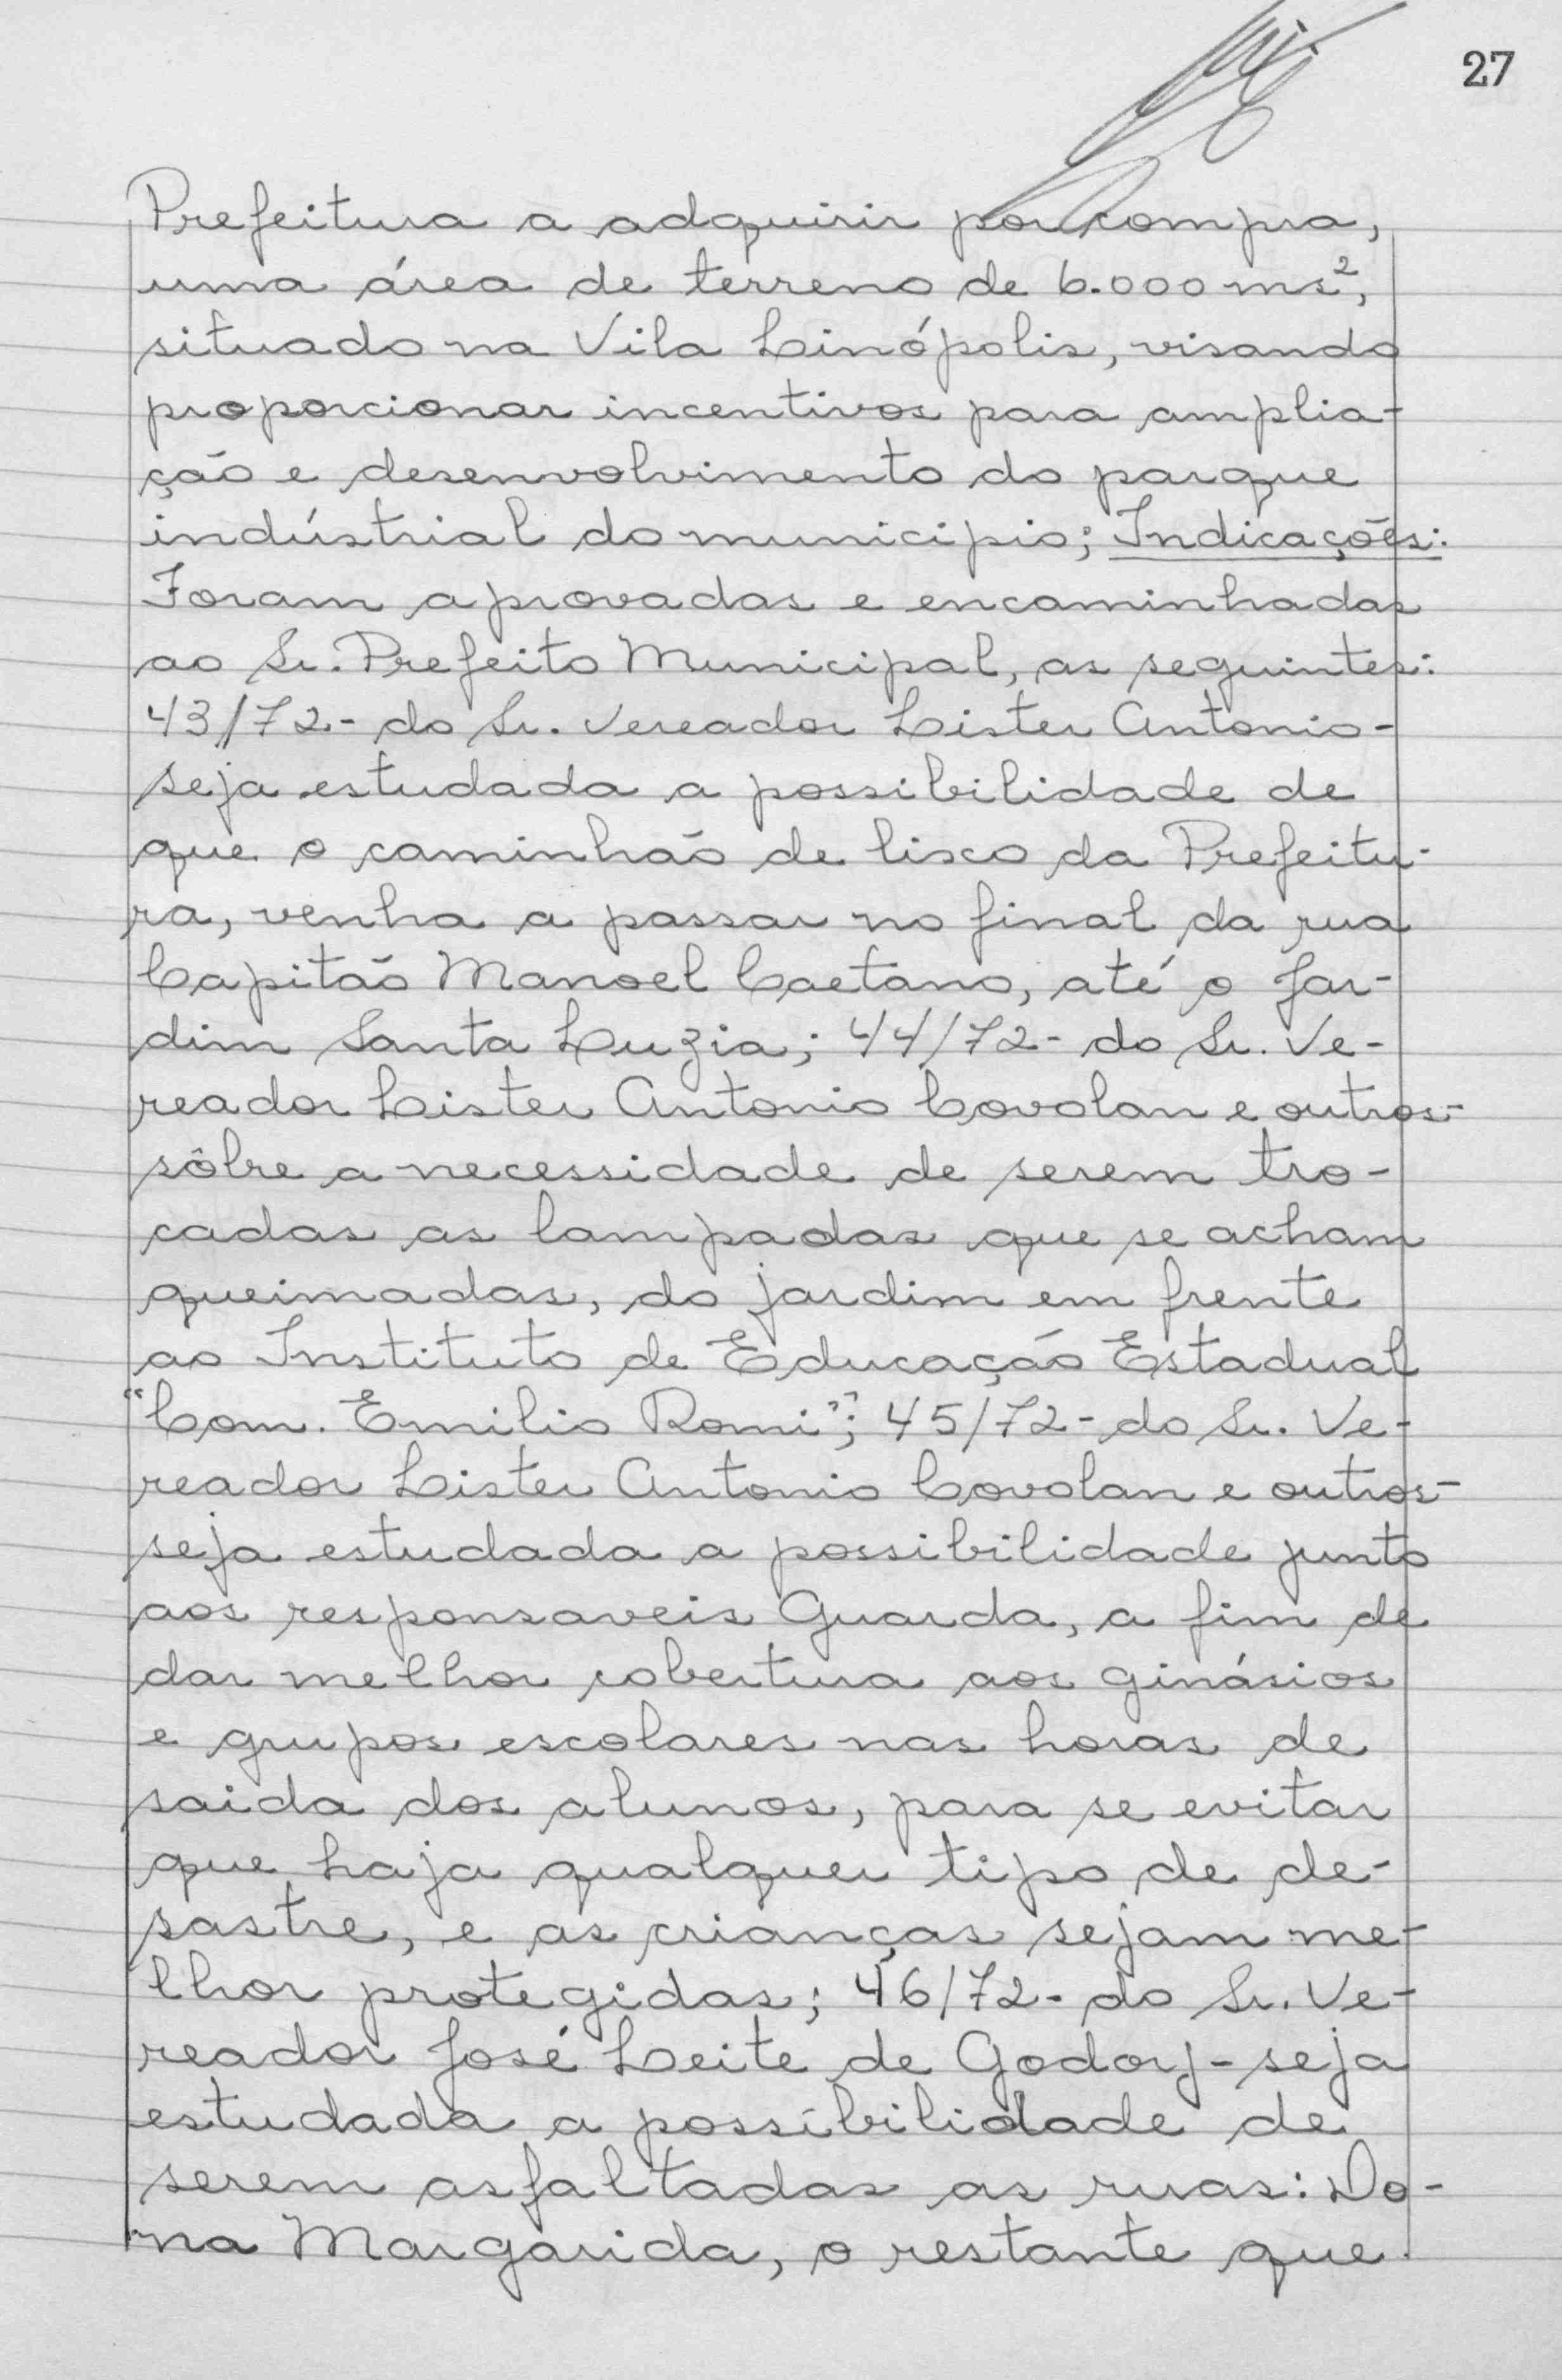 27
Prefeitura a adquirir por compra,
uma área de terreno de 6.000 ms²,
situado na Vila Linópolis, visando
proporcionar incentivos para amplia-
ção e desenvolvimento do parque
indústrial do municipio; Indicações:
Foram aprovadas e encaminhadas
ao Sr. Prefeito Municipal, as seguintes:
43/72- do Sr. Vereador Lister Antonio-
seja estudada a possibilidade de
que o caminhão de lisco da Prefeitu-
ra, venha a passar no final da rua
Capitão Manoel Caetano, até o Jar-
dim Santa Luzia; 44/72- do Sr. Ve-
reador Lister Antonio Covolan e outros-
sôbre a necessidade de serem tro-
cadas as lampadas que se acham
queimadas, do jardim em frente
ao Instituto de Educação Estadual
"Com. Emilio Romi"; 45/72- do Sr. Ve-
reador Lister Antonio Covolan e outros-
seja estudada a possibilidade junto
aos responsaveis Guarda, a fim de
dar melhor cobertura aos ginásios
e grupos escolares nas horas de
saida dos alunos, para se evitar
que haja qualquer tipo de de-
sastre, e as crianças sejam me-
lhor protegidas; 46/72- do Sr. Ve-
reador José Leite de Godoy- seja
estudada a possibilidade de
serem asfaltadas as ruas: Do-
na Margarida, o restante que